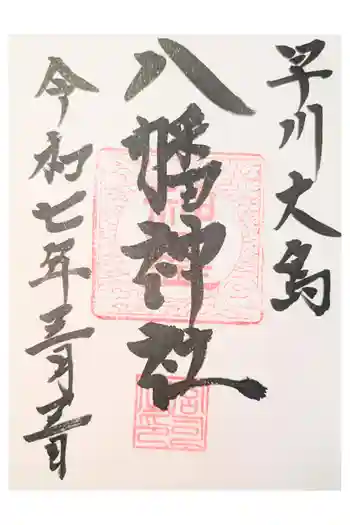 早川大島
八幡神社
令和七年三月三日